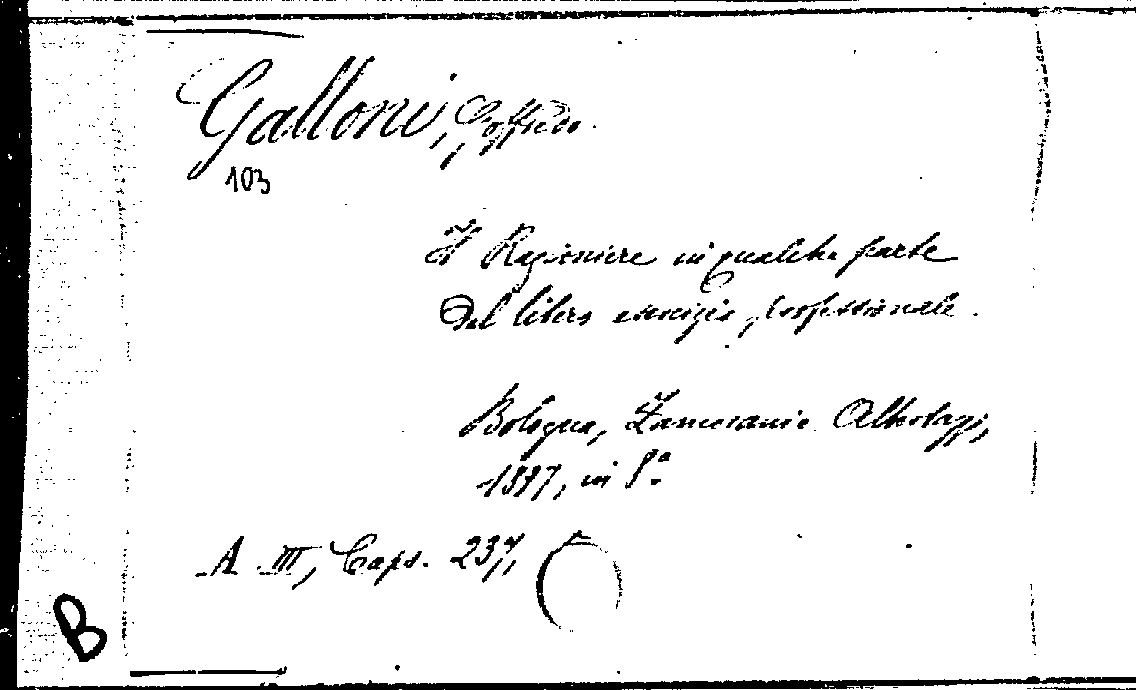 Galloni, Goffredo.
103
Il Ragioniere in qualche parte
del libero esercizio professionale.
Bologna, Zamorani e Albertazzi,
1897, in 8°
A III, Caps. 237,
B